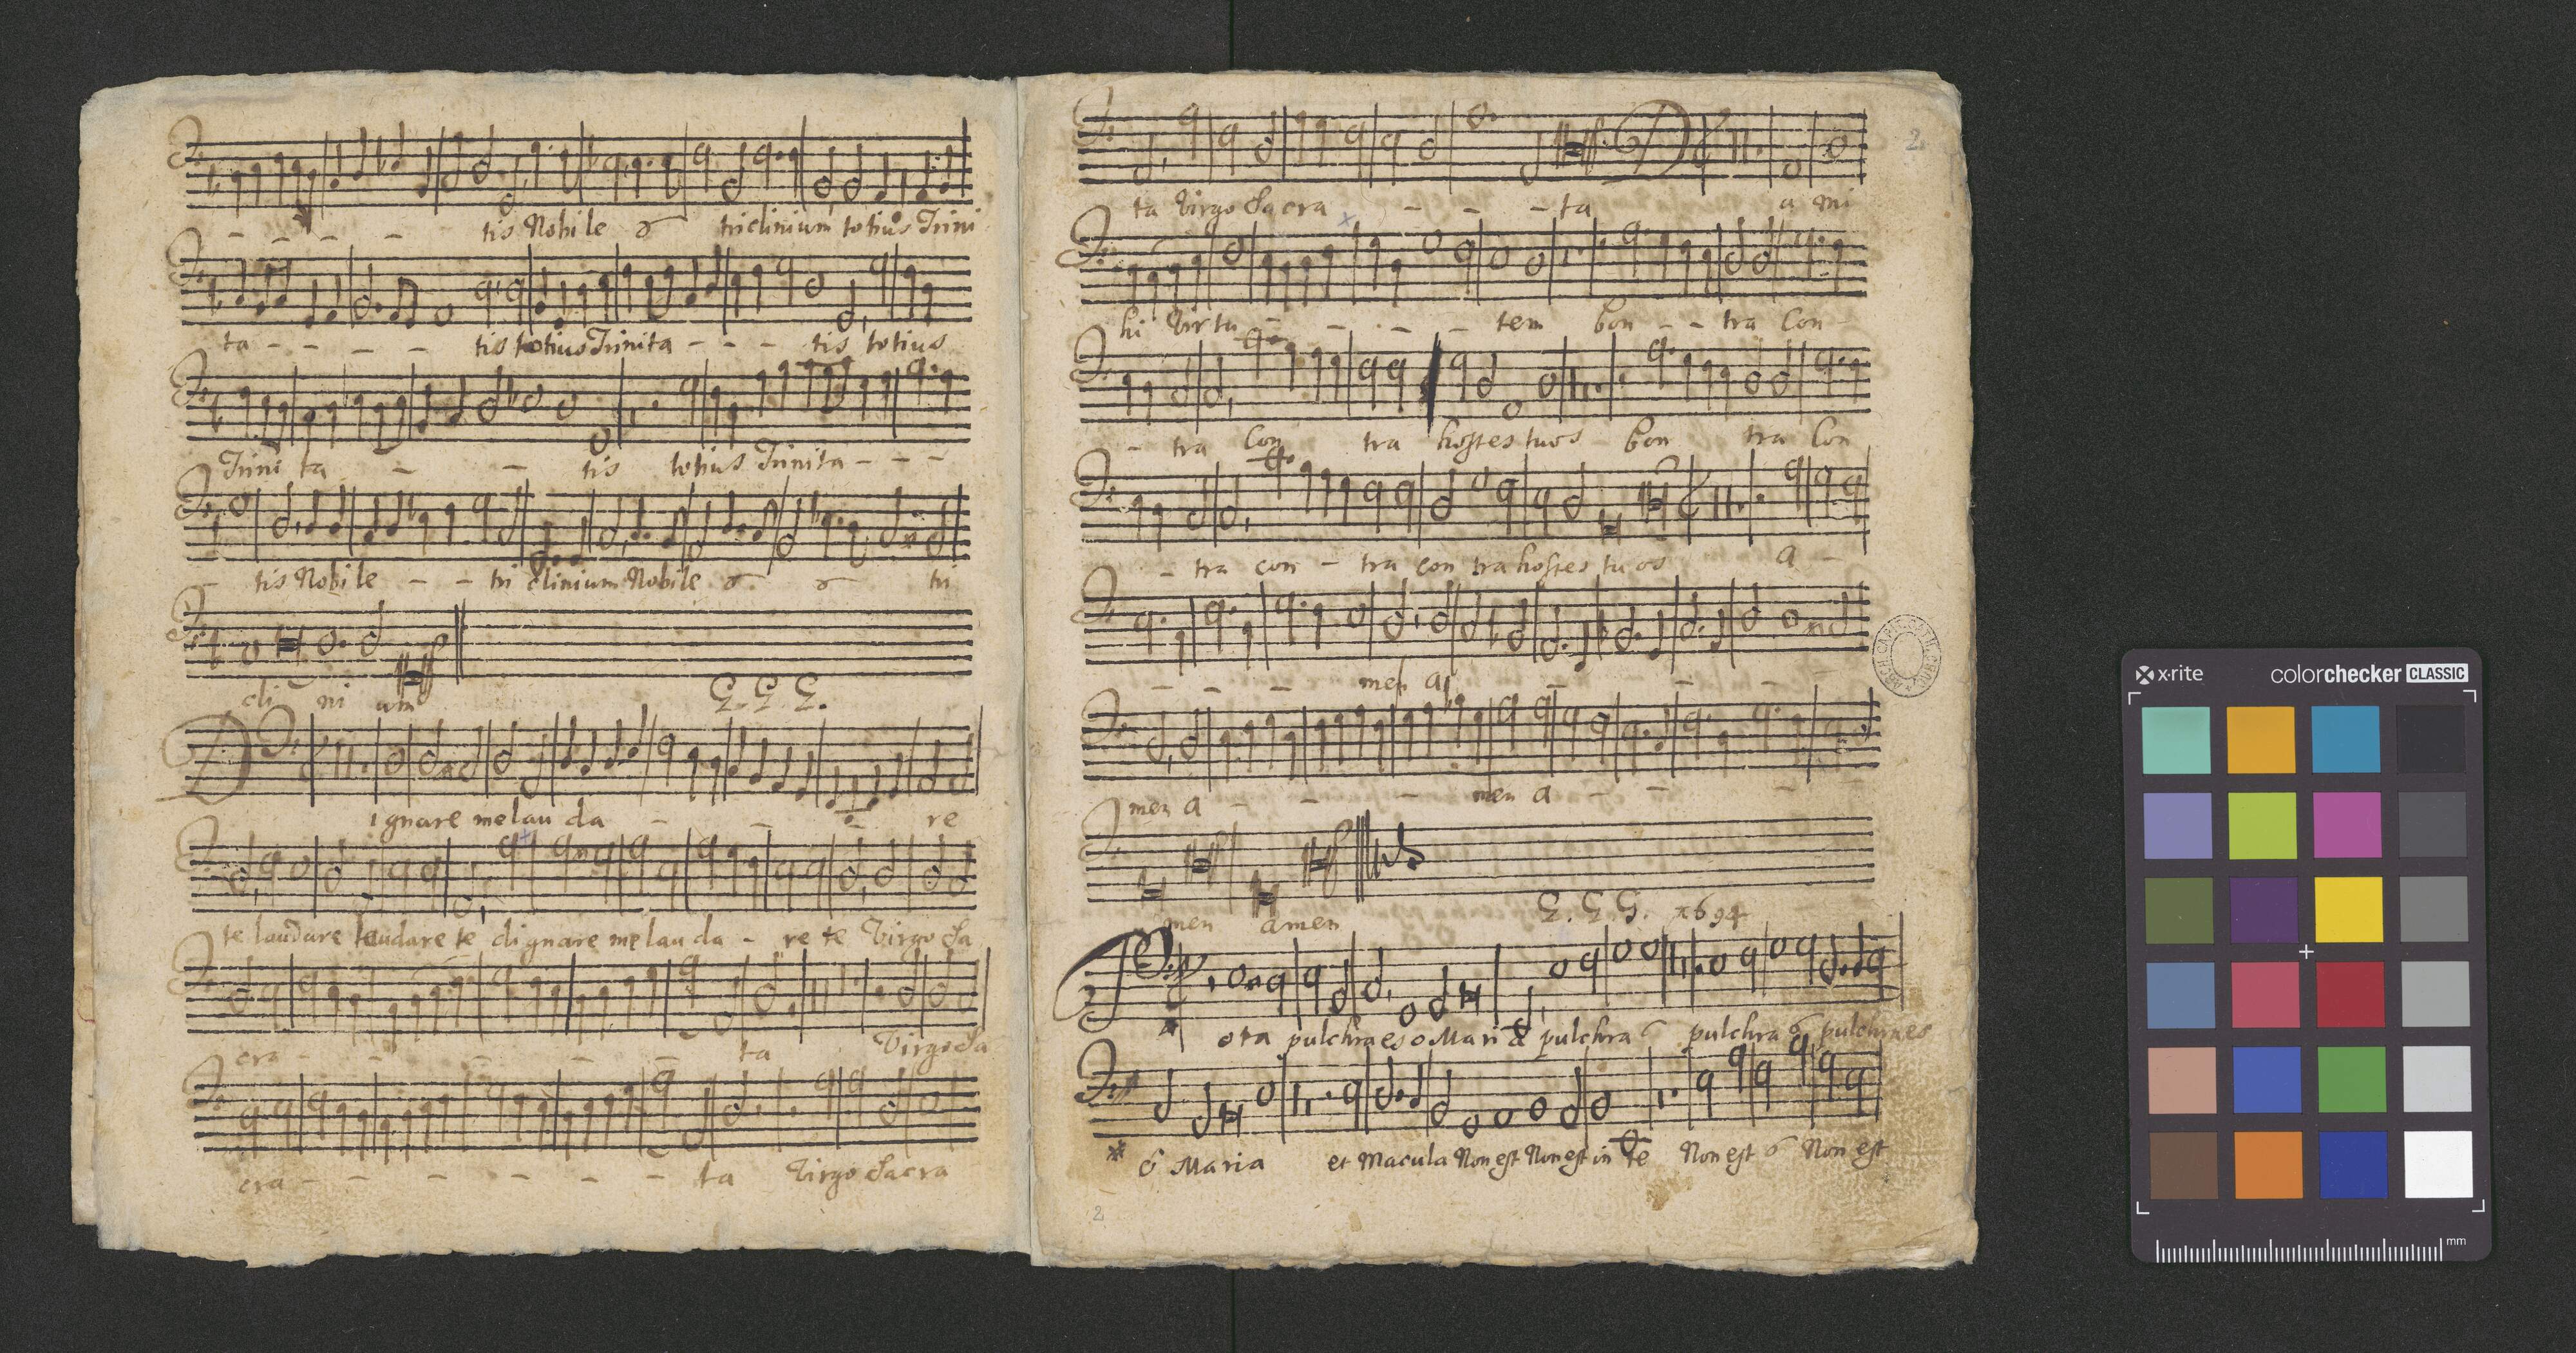 - - - - tis Nobile triclinium totius Trini
ta - - - - tis totius Trinita - - - tis totius
Trini ta - - tis totius Trinita - - -
- tis Nobile - - tri clinium Nobile tri
cli - ni um
G. G. G.
Dignare me lau da - - - re
te laudare laudare te dignare me lau da - re te Virgo Sa
cra - - - - - ta Virgo Sa
cra - - - - - - ta Virgo Sacra
2
ta Virgo Sacra - - - ta a mi
hi Virtu - - - - tem Con - - tra Con
- tra Con tra hostes tuos Con tra Con
- tra con - tra con tra hostes tu os A -
- - - men A - - - -
men A - - - men A - - -
men amen
G. G. G. 1694
Tota pulchra es o Maria pulchra pulchra pulchra es
ô Maria et Macula Non est Non est in te Non est Non est
2
x·rite colorchecker CLASSIC
mm